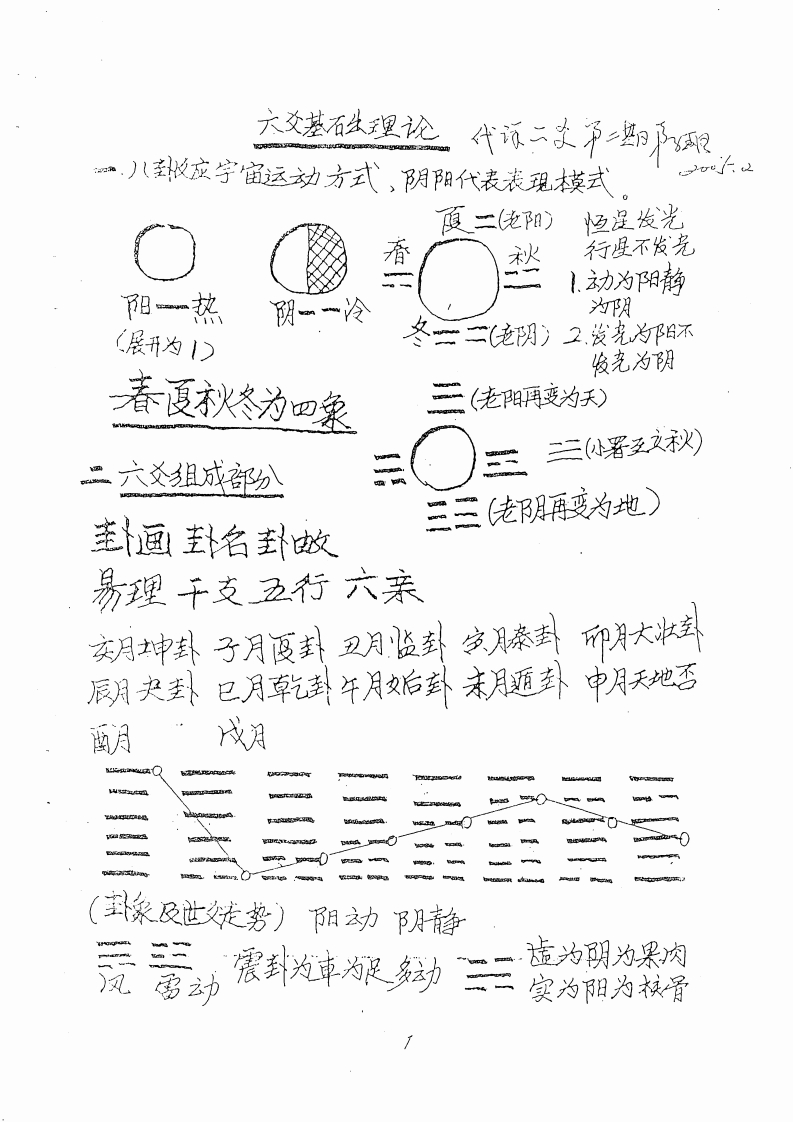 六爻基石生理论
代 二爻第二期
2005.2
一.八卦收应宇宙运动方式、阴阳代表表现模式。
夏 (老阳) 恒星发光
春 秋 行星不发光
阳 热 阴 冷 1.动为阳静
为阴
(展开为1) 冬 (老阴) 2.发光为阳不
发光为阴
春夏秋冬为四象
(老阳再变为天)
二 六爻组成部分
(老阴再变为地)
卦画 卦名 卦
易理 干支 五行 六亲
亥月坤卦 子月 卦 丑月 卦 寅月泰卦 卯月大壮卦
辰月夬卦 巳月乾卦 午月姤卦 未月遁卦 申月天地否
酉月 戌月
(卦象及世爻走势) 阳动 阴静
风 雷动 震卦为車为足多动 虚为阴为果肉
实为阳为核骨
1